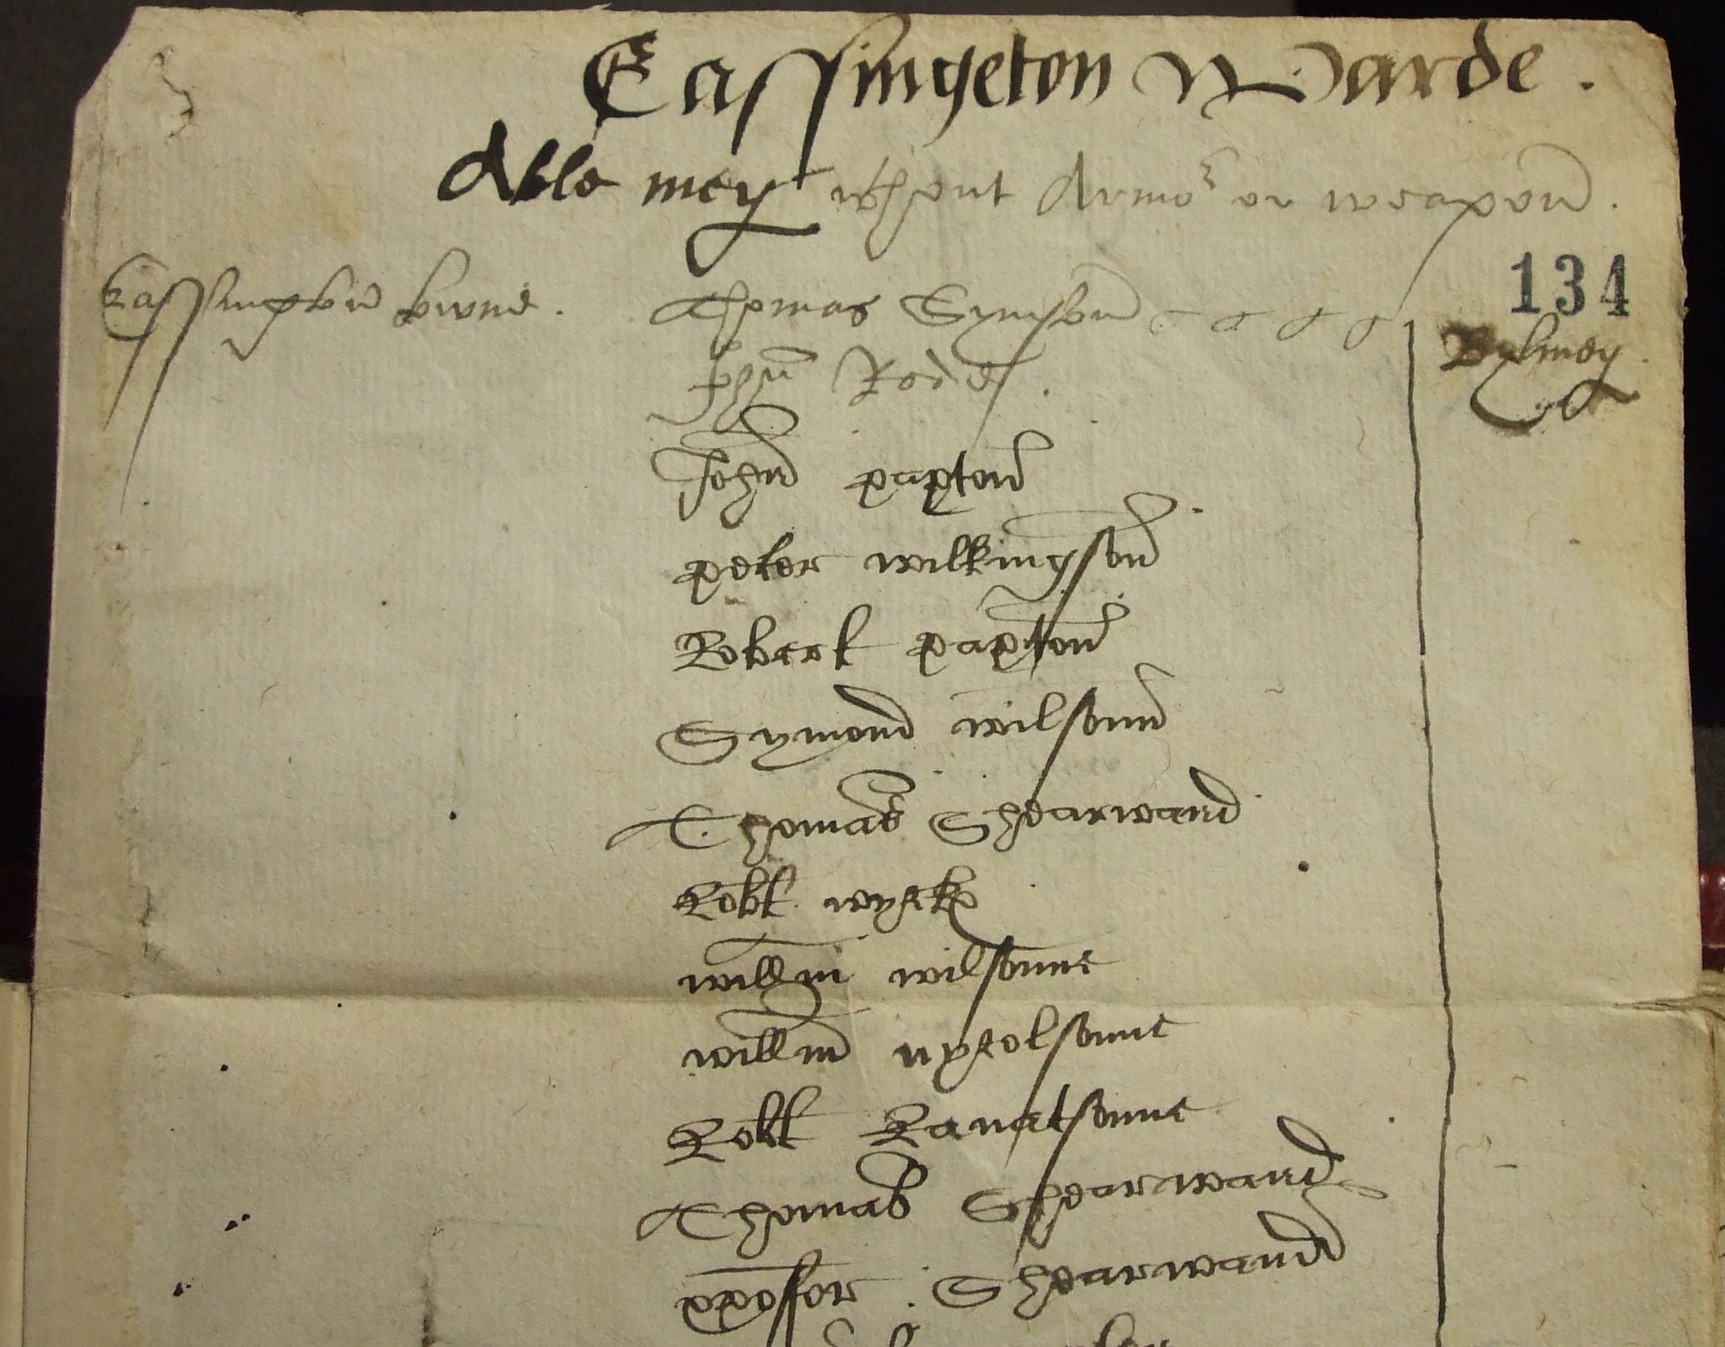 Eassingeton Warde .
Able mey wthout Armor or weapon .
134
Eassington towne . Thomas Symson
Bylmey
Jhn Rede .
John paxton
peter wilkingson
Robert paxton
Symond wilsonn
Thomas Shearwand
Robt wycke
willm wilsonne
willm nycolsonne
Robt Ranatsonne
Thomas Shearwand
xpofer Shearwand